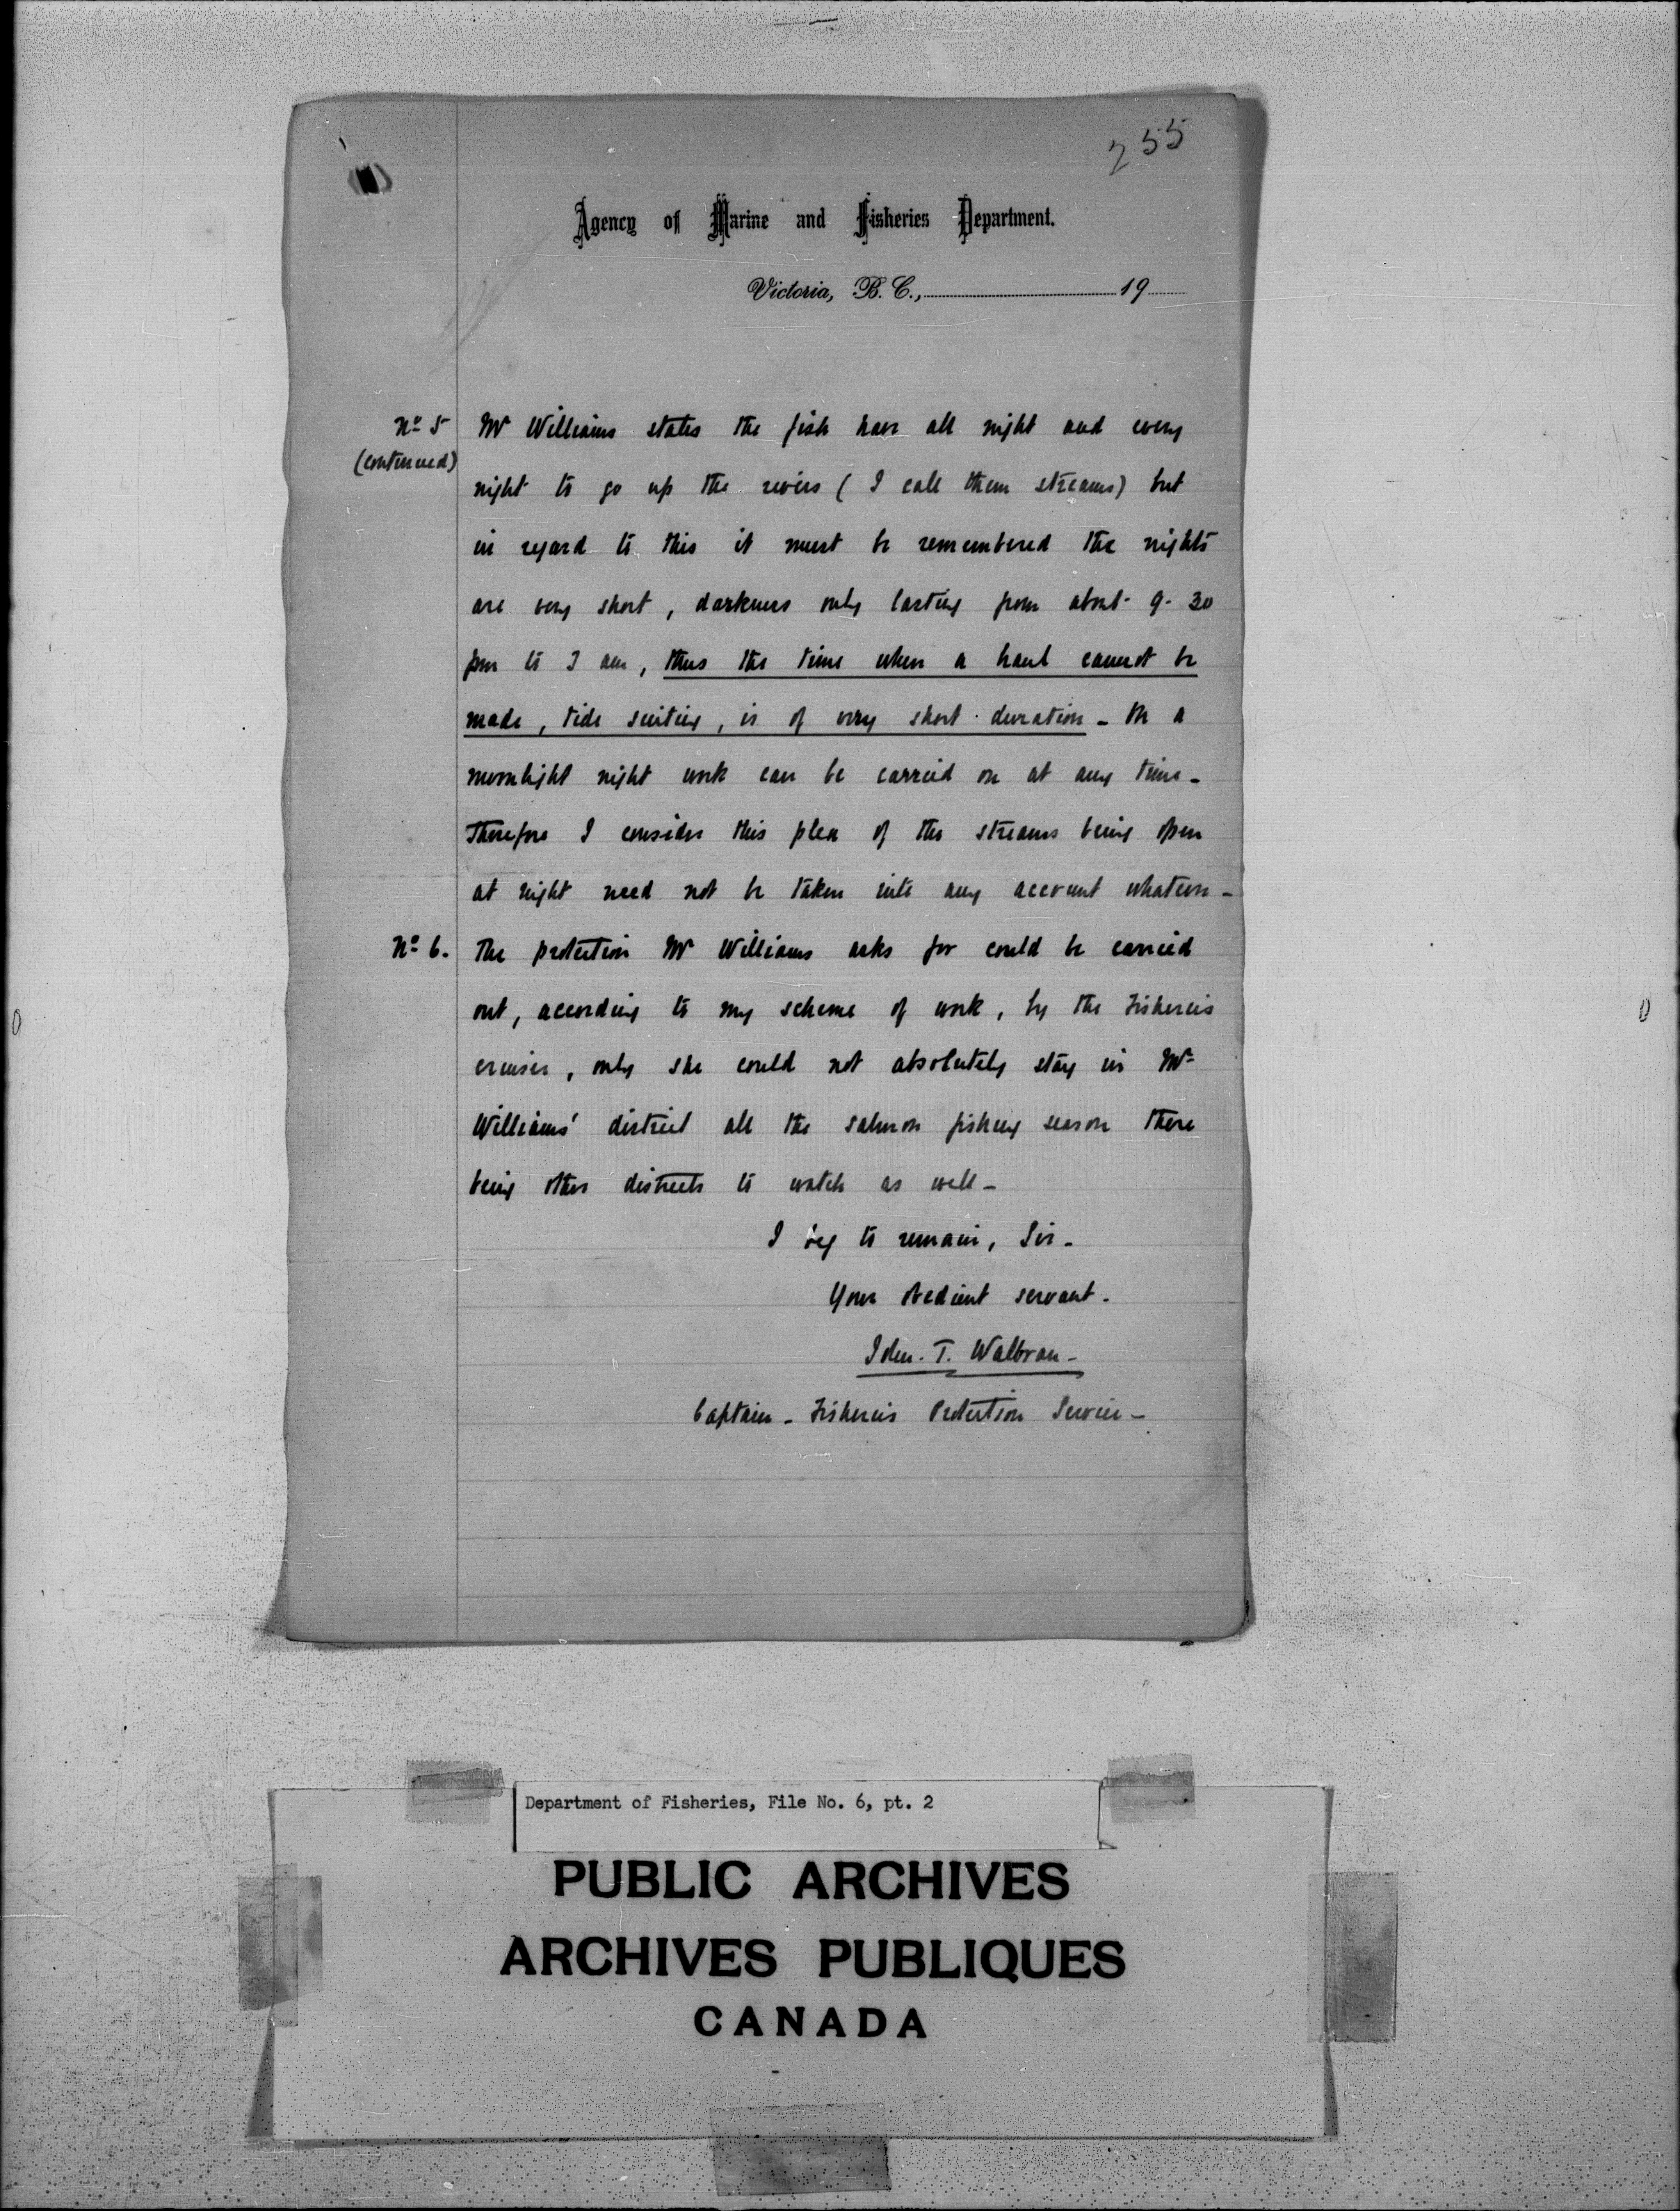 255
Agency of Marine and Fisheries Department.
Victoria, B. C., 19
No 5 Mr Williams states the fish have all night and every
(continued) night to go up the rivers ( I call them streams) but
in regard to this it must be remembered the nights
are very short, darkness only lasting from about 9-30
pm to 3 am, thus the time when a haul cannot be
made, tide suiting, is of very short duration - On a
moonlight night work can be carried on at any time -
Therefore I consider this plea of the streams being open
at night need not be taken into any account whatever -
No 6. The protection Mr Williams asks for could be carried
out, according to my scheme of work, by the Fisheries
cruiser, only she could not absolutely stay in Mr
Williams' district all the salmon fishing season there
being other districts to watch as well -
I beg to remain, Sir -
Your obedient servant.
John. T. Walbran -
Captain - Fisheries Protection Service -
Department of Fisheries, File No. 6, pt. 2
PUBLIC ARCHIVES
ARCHIVES PUBLIQUES
CANADA